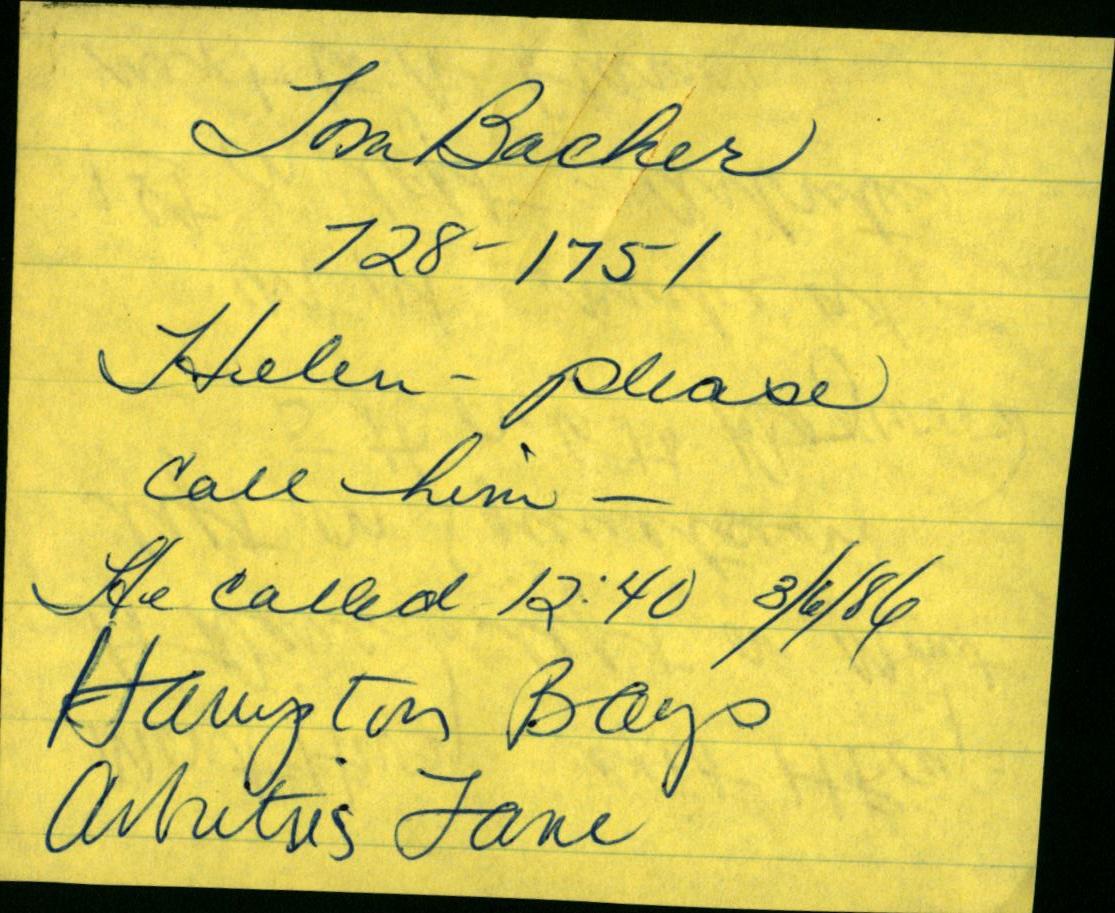 Tom Bacher
728-1751
Helen - please
call him —
He called 12:40 3/6/86
Hampton Bays
Lane